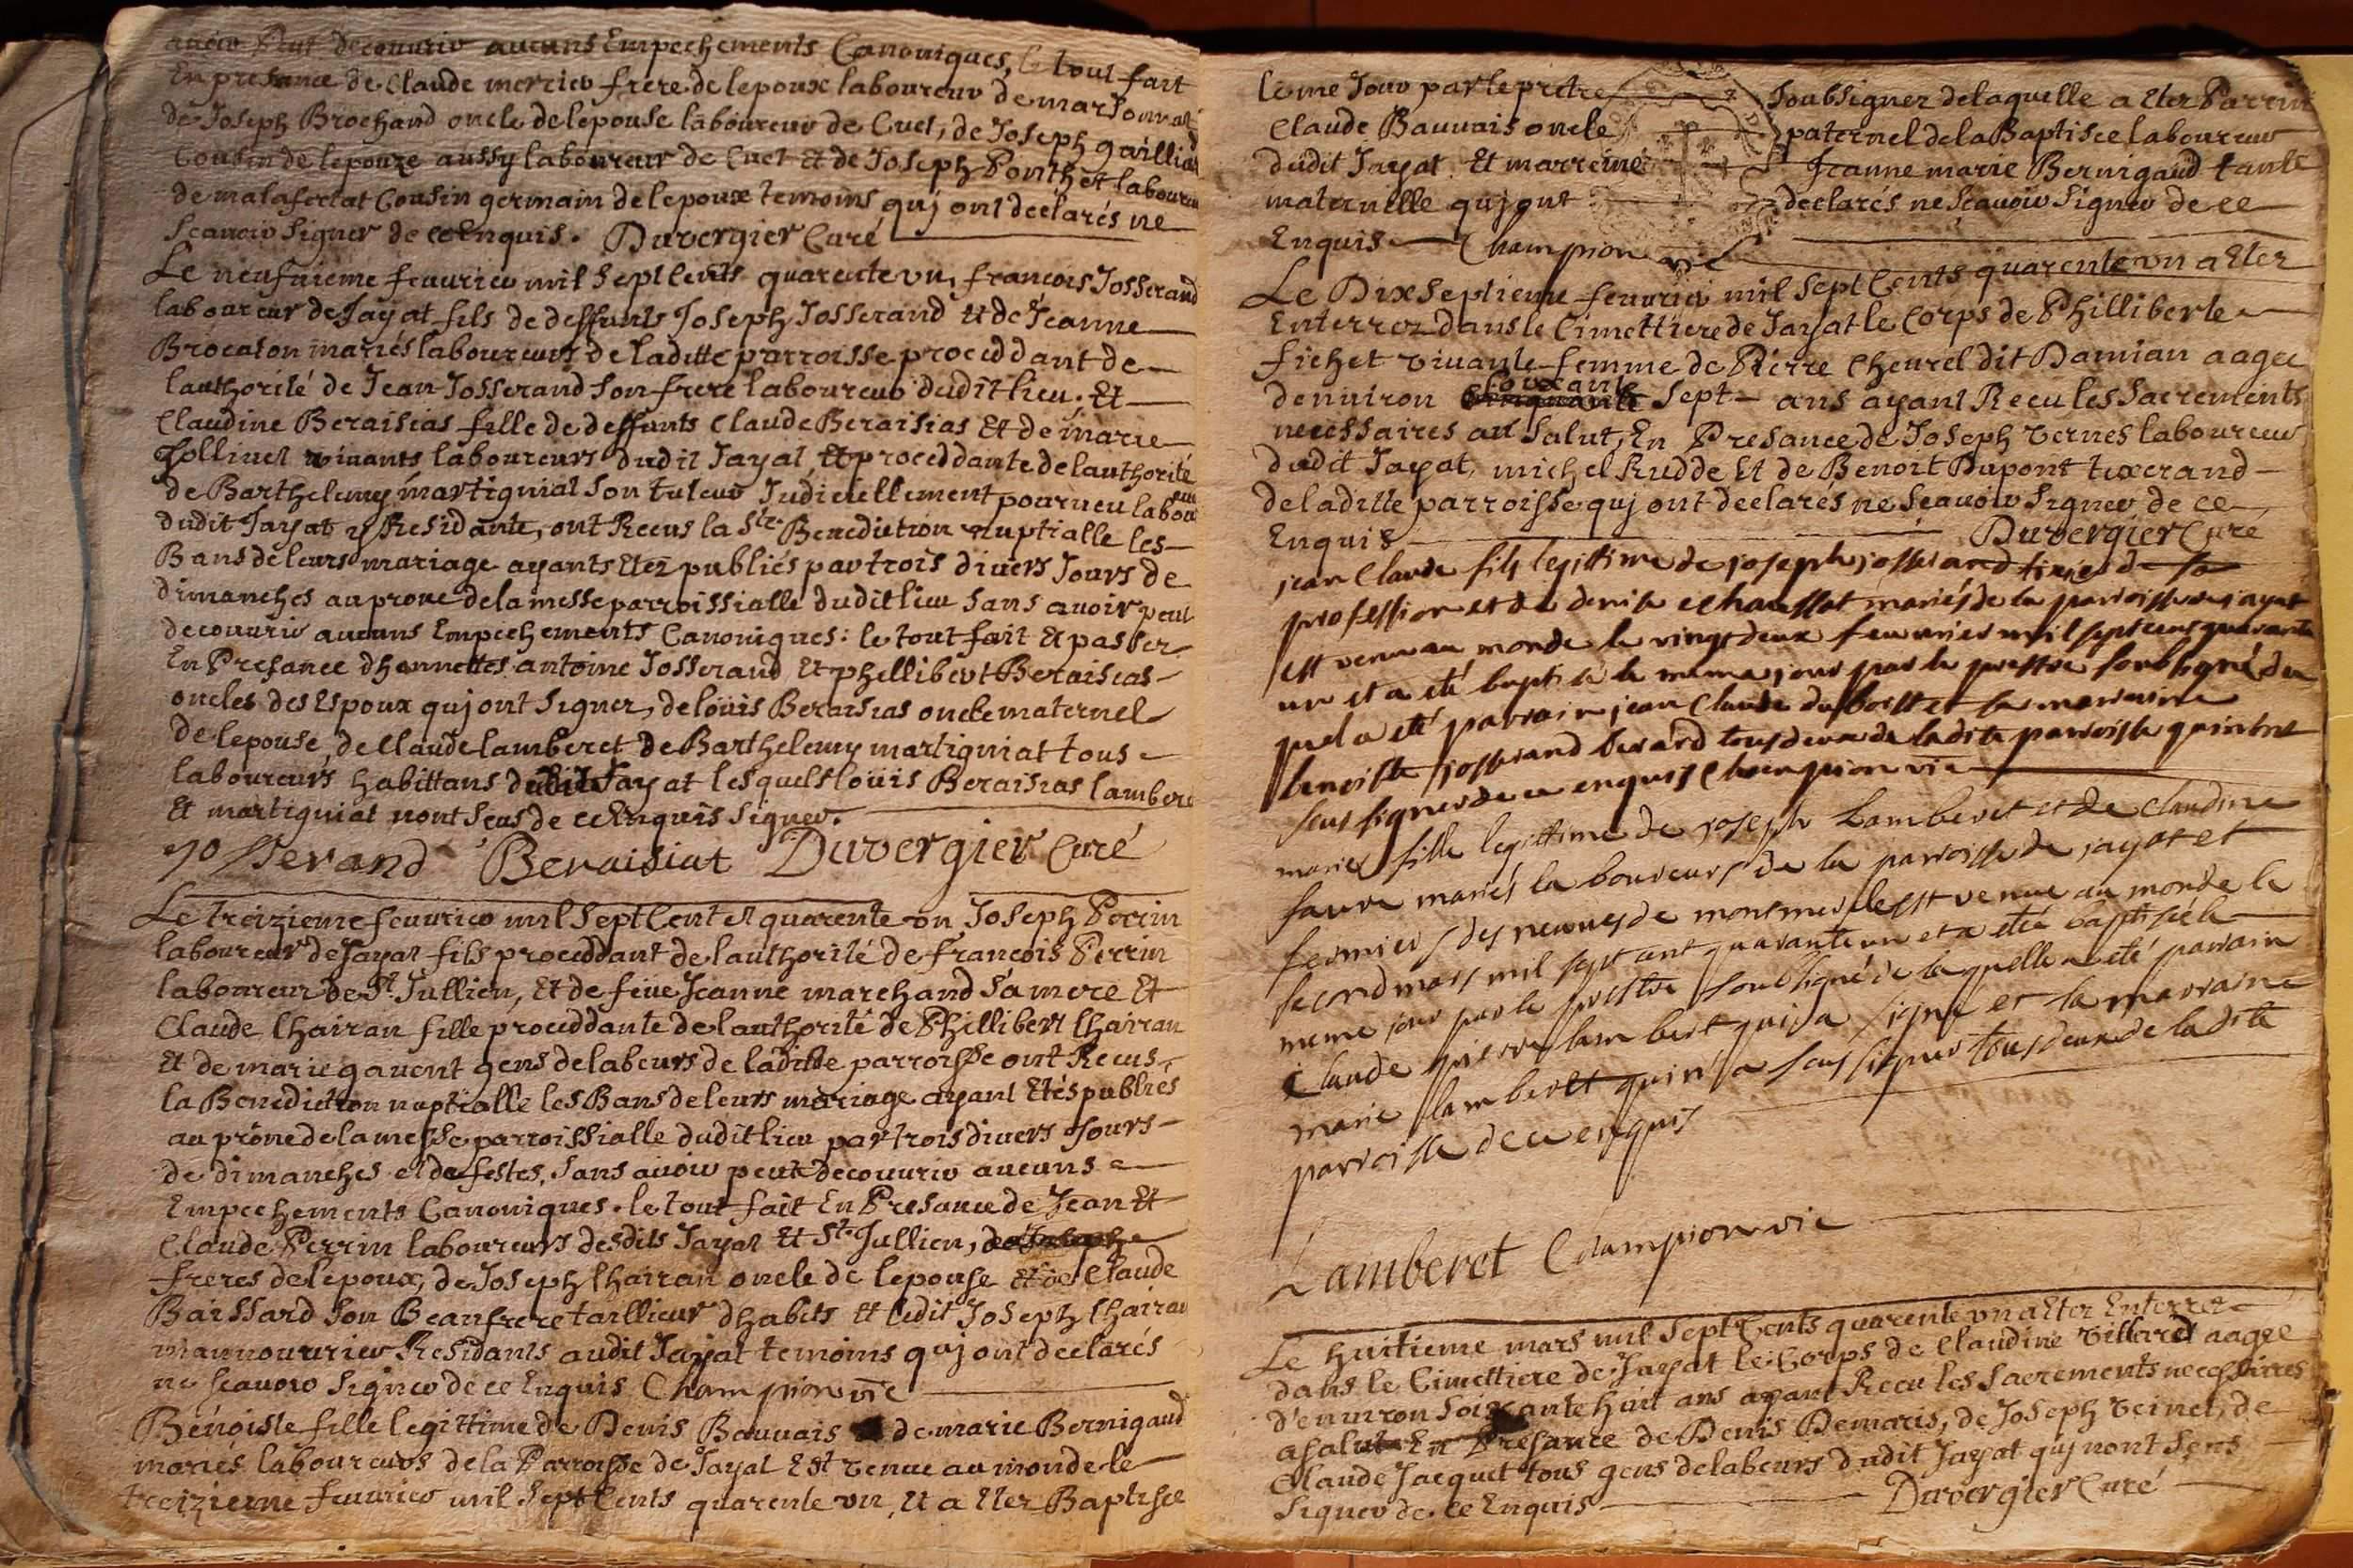 aucuns Empechements Canoniques, le tout fait
En presance de Claude merrieu frere de lepoux laboureur de marsonnat
de Joseph Brochand oncle de lepouse laboureur de Cuet, de Joseph gaillia
Cousin de lepouze aussy laboureur de Cuet Et de Joseph Ponthet laboureu
de malafretat Cousin germain de lepoux temoins quj ont declarés ne
Scauoir Signer de ce Enquis. Duvergier Curé
Le neufuieme feurier mil Sept Cents quarente vn, francois Josserand
laboureur de Jayat fils de deffunts Joseph Josserand Et de Jeanne
Brocason mariés laboureurs de laditte parroisse proceddant de
lauthorité de Jean Josserand Son frere laboureur dudit lieu. Et
Claudine Beraisias fille de deffunts Claude Beraisias Et de marie
Jollinet viuants laboureurs dudit Jayat Et proceddante de lauthorité
de Barthelemy martigniat Son tuteur Judiciellement pourueu laboureu
dudit Jayat y Residante, ont Receus la Ste. Benediction nuptialle les
Bans de leurs mariage ayants Etez publiés par trois diuers Jours de
dimanches au prone de la messe parroissialle dudit lieu Sans auoir peut
decouurir aucuns Empechements Canoniques: le tout fait Et passer
En Presance dhonnettes antoine Josserand Et phillibert Beraisias
oncles des Espoux quj ont Signer, de loüis Beraisias oncle maternel
de lepouse, de Claude lamberet de Barthelemy martigniat tous
laboureurs habittans dudit Jayat lesquels loüis Beraisias lambere
Et martigniat nont Scus de ce Enquis Signer.
Josserand Beraisiat Duvergier Curé
Le treizieme feurier mil Sept Cent et quarente vn Joseph Perrin
laboureur de Jayat fils proceddant de lauthorité de francois Perrin
laboureur de St. Jullien, Et de feüe Jeanne marchand Sa mere Et
Claude Chairan fille proceddante de lauthorité de Phillibert Chairan
Et de marie gauent gens de labeurs de laditte parroisse ont Receus
la Benediction nuptialle les Bans de leurs mariage ayant Etés publiés
au prône de la messe parroissialle dudit lieu par trois diuers Jours
de dimanches et de festes, Sans auoir peut decouurir aucuns
Empechements Canoniques. le tout fait En Presance de Jean Et
Claude Perrin laboureurs desdits Jayat Et St. Jullien,
freres de lepoux, de Joseph Chairan oncle de lepouse Et de Claude
Baissard Son Beaufrere taillieur dhabits Et ledit Joseph Chairan
mannouurier Residants audit Jayat temoins quj ont declarés
ne Scauoir Signer de ce Enquis Champion vic
Benoiste fille legittime de Denis Bauuais de marie Bernigaud
mariés laboureurs de la Parroisse de Jayat Est venue au monde le
treizieme feurier mil Sept Cents quarente vn, Et a Eter Baptisee
le me Jour par le pretre Soubsigner de laquelle a Eter Parrin
Claude Bauuais oncle paternel de la Baptisee laboureur
dudit Jayat Et marreine Jeanne marie Bernigaud tante
maternelle quj ont declarés ne Scauoir Signer de ce
Enquis Champion vic
Le Dixseptieme feurier mil Sept Cents quarente vn a Eter
Enterrez dans le Cimettiere de Jayat le Corps de Philliberte
fichet viuante femme de Pierre Cheurel dit Damian aagee
denuiron Soixante Sept ans ayant Receu les Sacrements
necessaires au Salut, En Presance de Joseph vernes laboureur
dudit Jayat, michel Rudde Et de Benoit Dupont tixerand
de laditte parroisse quj ont declarés ne Scauoir Signer de ce
Enquis Duvergier Curé
jean Claude fils legittime de joseph josserand de sa
profession et de denise echaussat mariés de la parroisse de jayat
est venu au monde le vingt deux feurier mil sept cens quarante
un et a eté baptisé le meme jour par le prestre soubsigné du
quel a eté parrain jean Claude dubost et la marraine
benoiste josserand berard tous deux de ladite parroisse qui n'ont
scus signer de ce enquis Champion vic
marie fille legittime de joseph Lamberet et de claudine
faure mariés laboureurs de la parroisse de jayat et
fermiers des est venue au monde le
second mars mil sept cent quarante un et a eté baptisée le
meme jour par le prestre soubsigné de laquelle a eté parrain
Claude pierre lamberet qui a signe et la marraine
marie lamberet qui n'a sceu signer tous deux de ladite
parroisse de ce enquis
Lamberet Champion vic
Le huitieme mars mil Sept Cents quarente vn a Eter Enterrer
dans le Cimettiere de Jayat le Corps de Claudine villard aagee
d'enuiron Soixante huit ans ayant Receu les Sacrements necessaires
a Salut En Presance de Denis Demaris, de Joseph veinet, de
Claude Jacquet tous gens de labeurs dudit Jayat quj nont Scus
Signer de ce Enquis Duvergier Curé